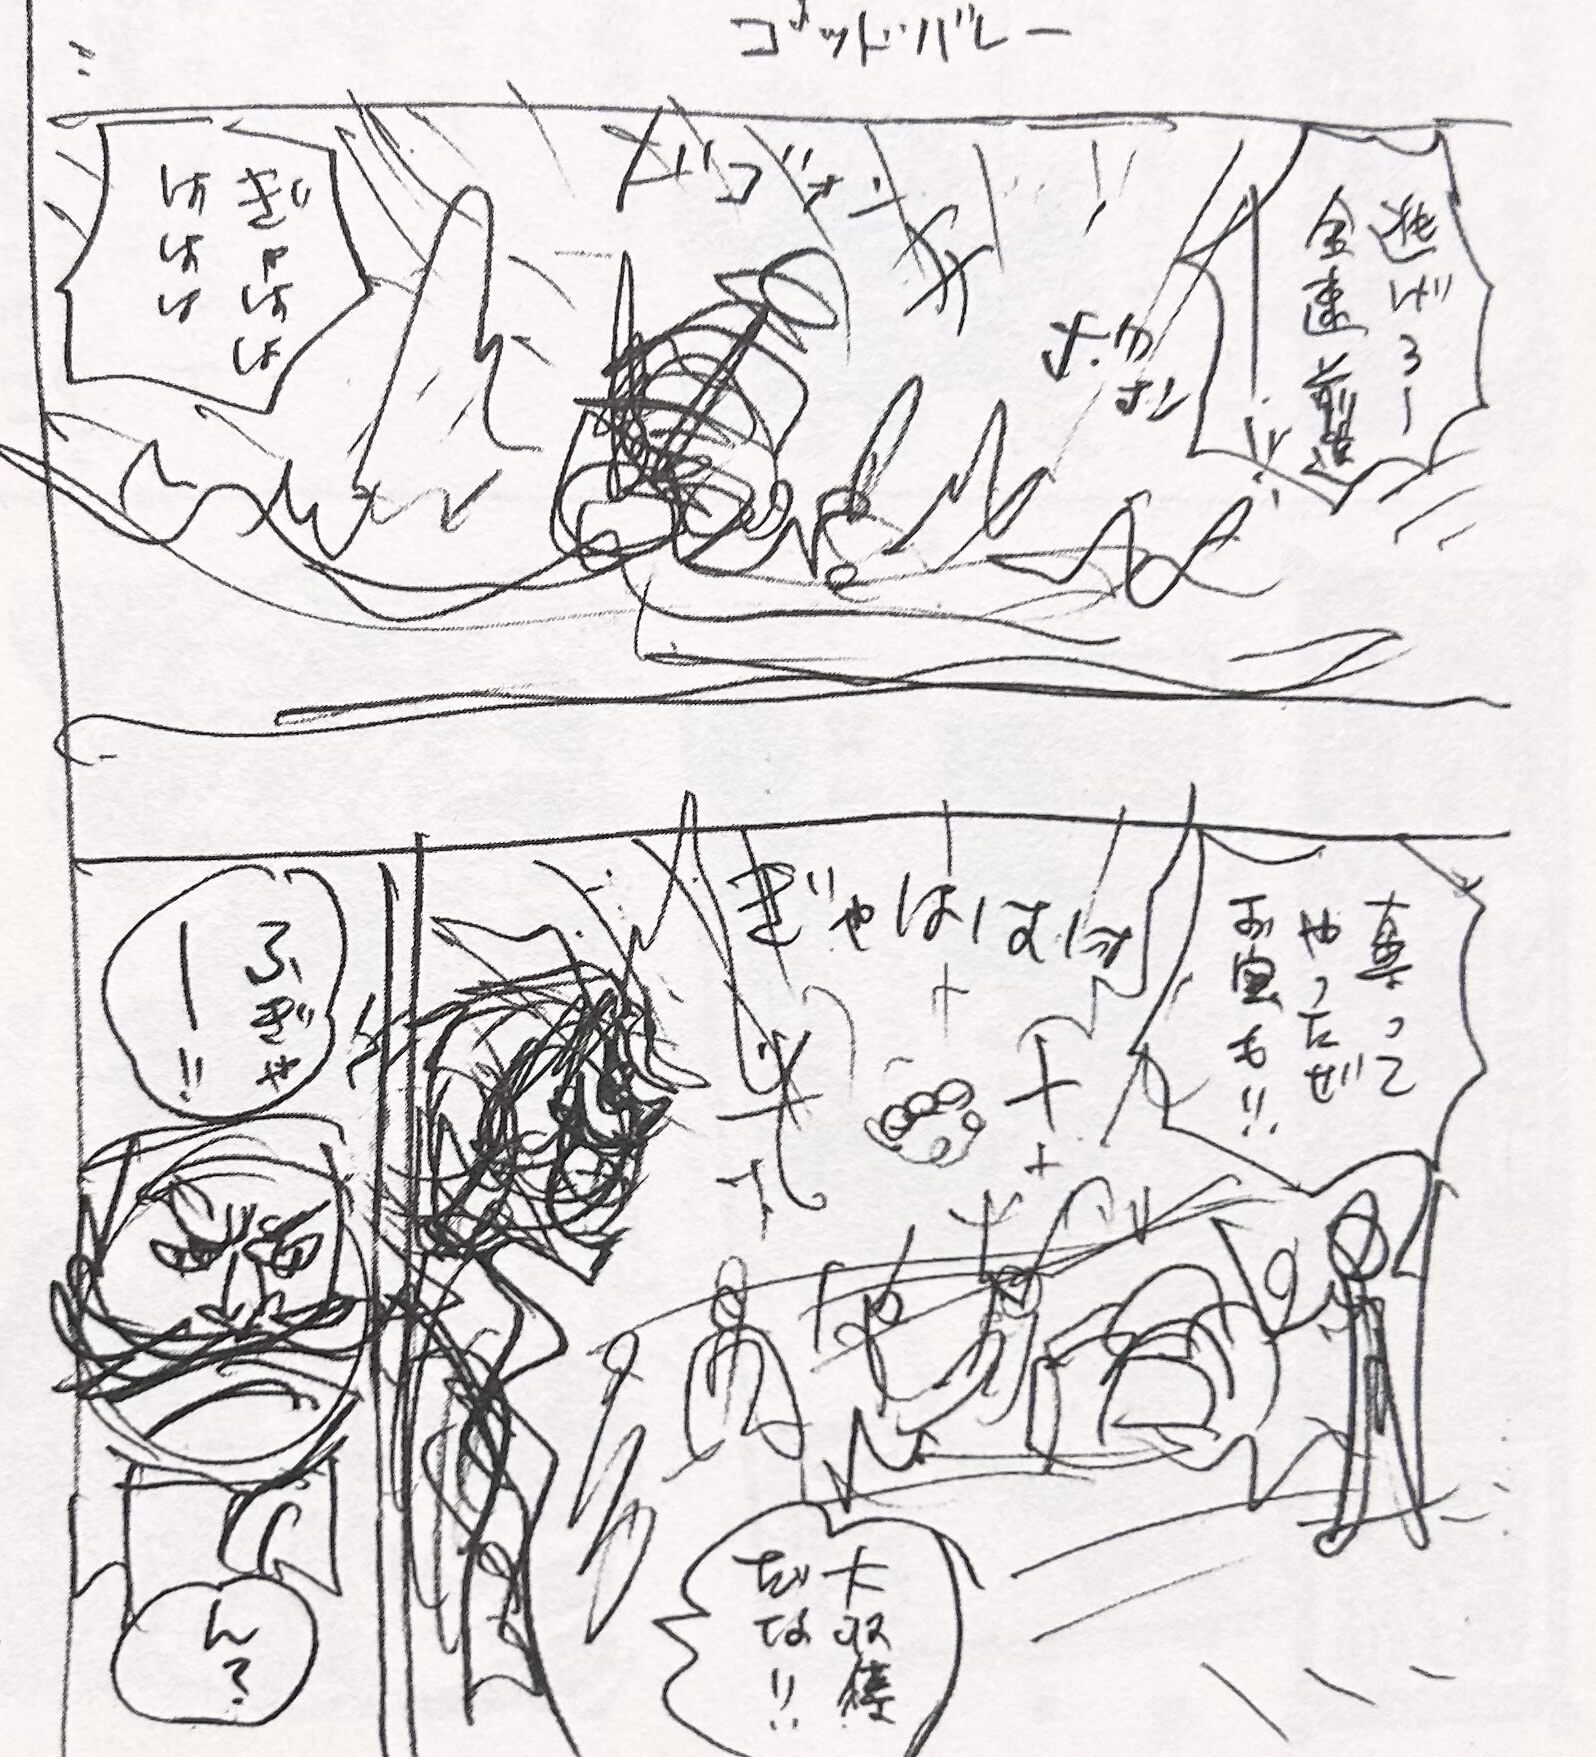 ゴッド・バレー
逃げろー
全速前進
ー!!
ドゴォン
ドカ
ォン
ぎゃはは
ははは
奪って
やったぜ
お宝も!!
ぎゃはははは
大収穫
だな!!
ふぎゃ
ー!!
ん?